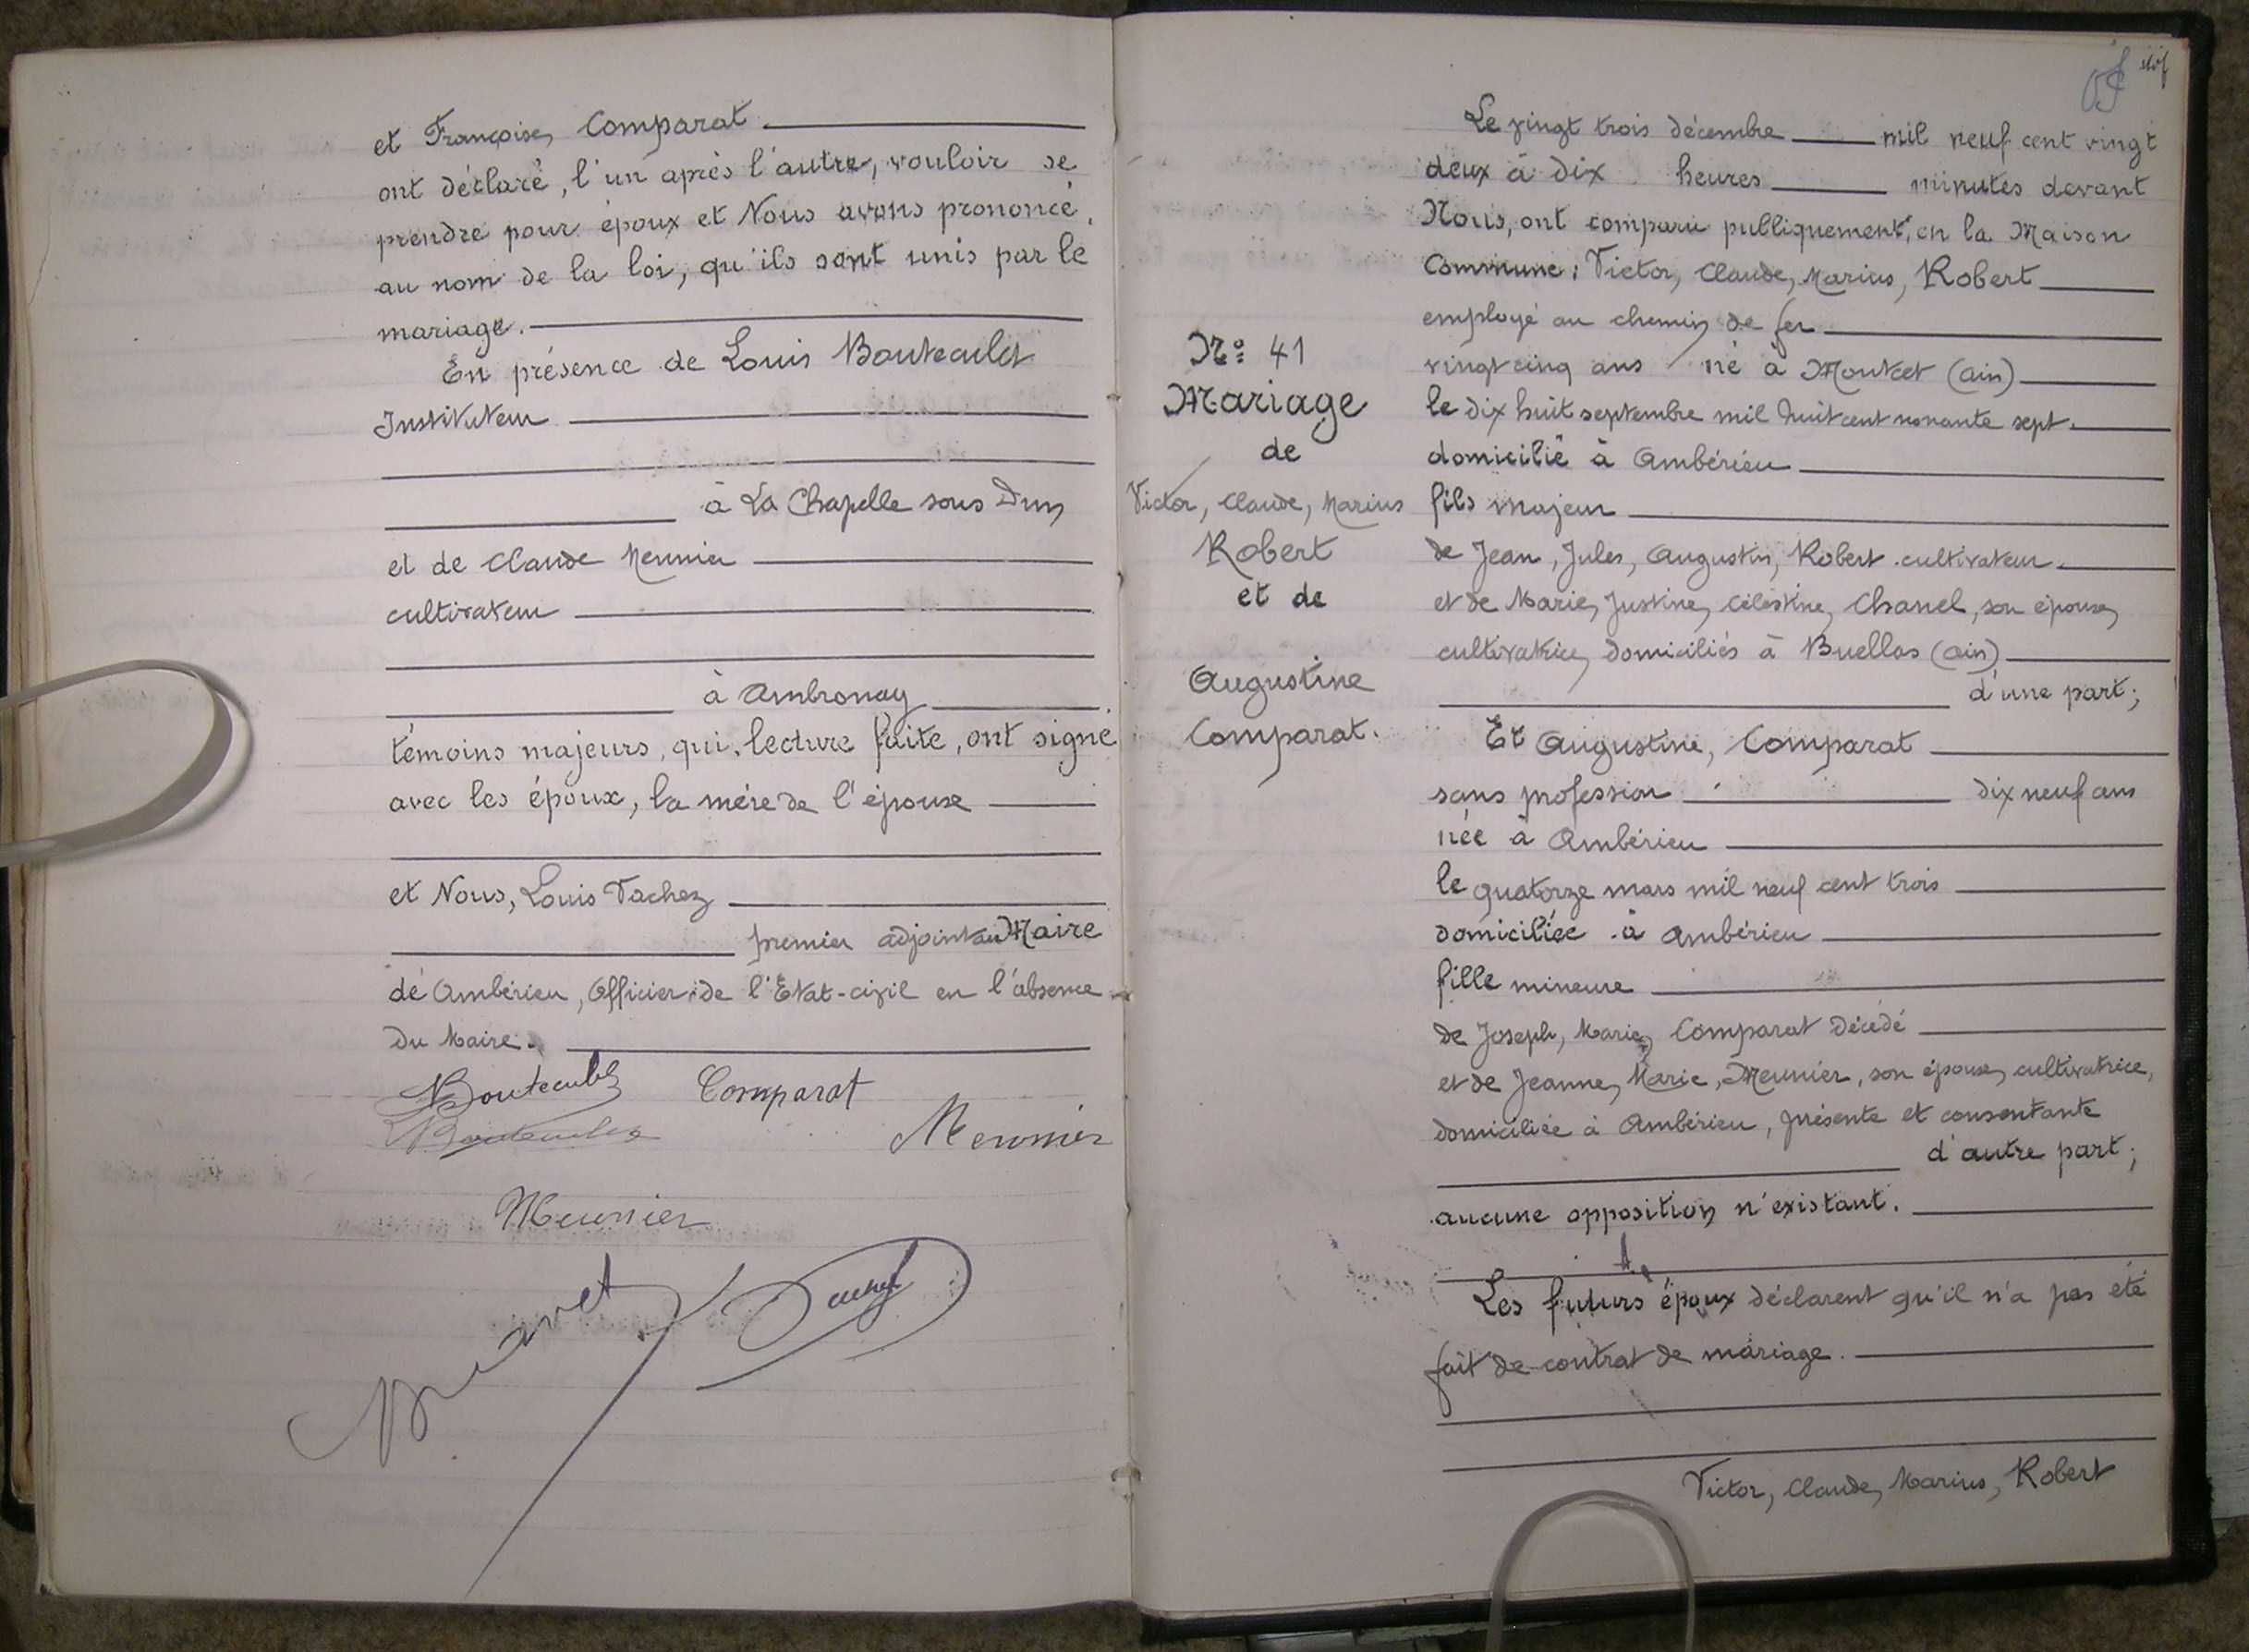 et Françoise, Comparat
ont déclaré, l'un après l'autre, vouloir se
prendre pour époux et Nous avons prononcé,
au nom de la loi, qu'ils sont unis par le
mariage.
En présence de Louis Bouteculet
Instituteur
à La Chapelle sous Dun
et de Claude Meunier
cultivateur
à Ambronay
témoins majeurs, qui, lecture faite, ont signé
avec les époux, la mère de l'épouse
et Nous, Louis Tachez
premier adjoint au Maire
de Ambérieu, Officier de l'Etat-civil en l'absence
du Maire.
Comparat
Meunier
Meunier
Nº 41
Mariage
de
Victor, Claude, Marius
Robert
et de
Augustine
Comparat.
Le vingt trois décembre mil neuf cent vingt
deux à dix heures minutes devant
Nous, ont comparu publiquement, en la Maison
Commune: Victor, Claude, Marius, Robert
employé au chemin de fer
vingt cinq ans né à Montcet (Ain)
le dix huit septembre mil huit cent nonante sept.
domicilié à Ambérieu
fils majeur
de Jean, Jules, Augustin, Robert cultivateur.
et de Marie, Justine, Célestine, Chanel, son épouse,
cultivatrice, domiciliés à Buellas (Ain)
d'une part;
Et Augustine, Comparat
sans profession dix neuf ans
née à Ambérieu
le quatorze mars mil neuf cent trois
domiciliée à Ambérieu
fille mineure
de Joseph, Marie, Comparat décédé
et de Jeanne, Marie, Meunier, son épouse, cultivatrice,
domiciliée à Ambérieu, présente et consentante
d'autre part;
aucune opposition n'existant.
Les futurs époux déclarent qu'il n'a pas été
fait de contrat de mariage.
Victor, Claude, Marius, Robert